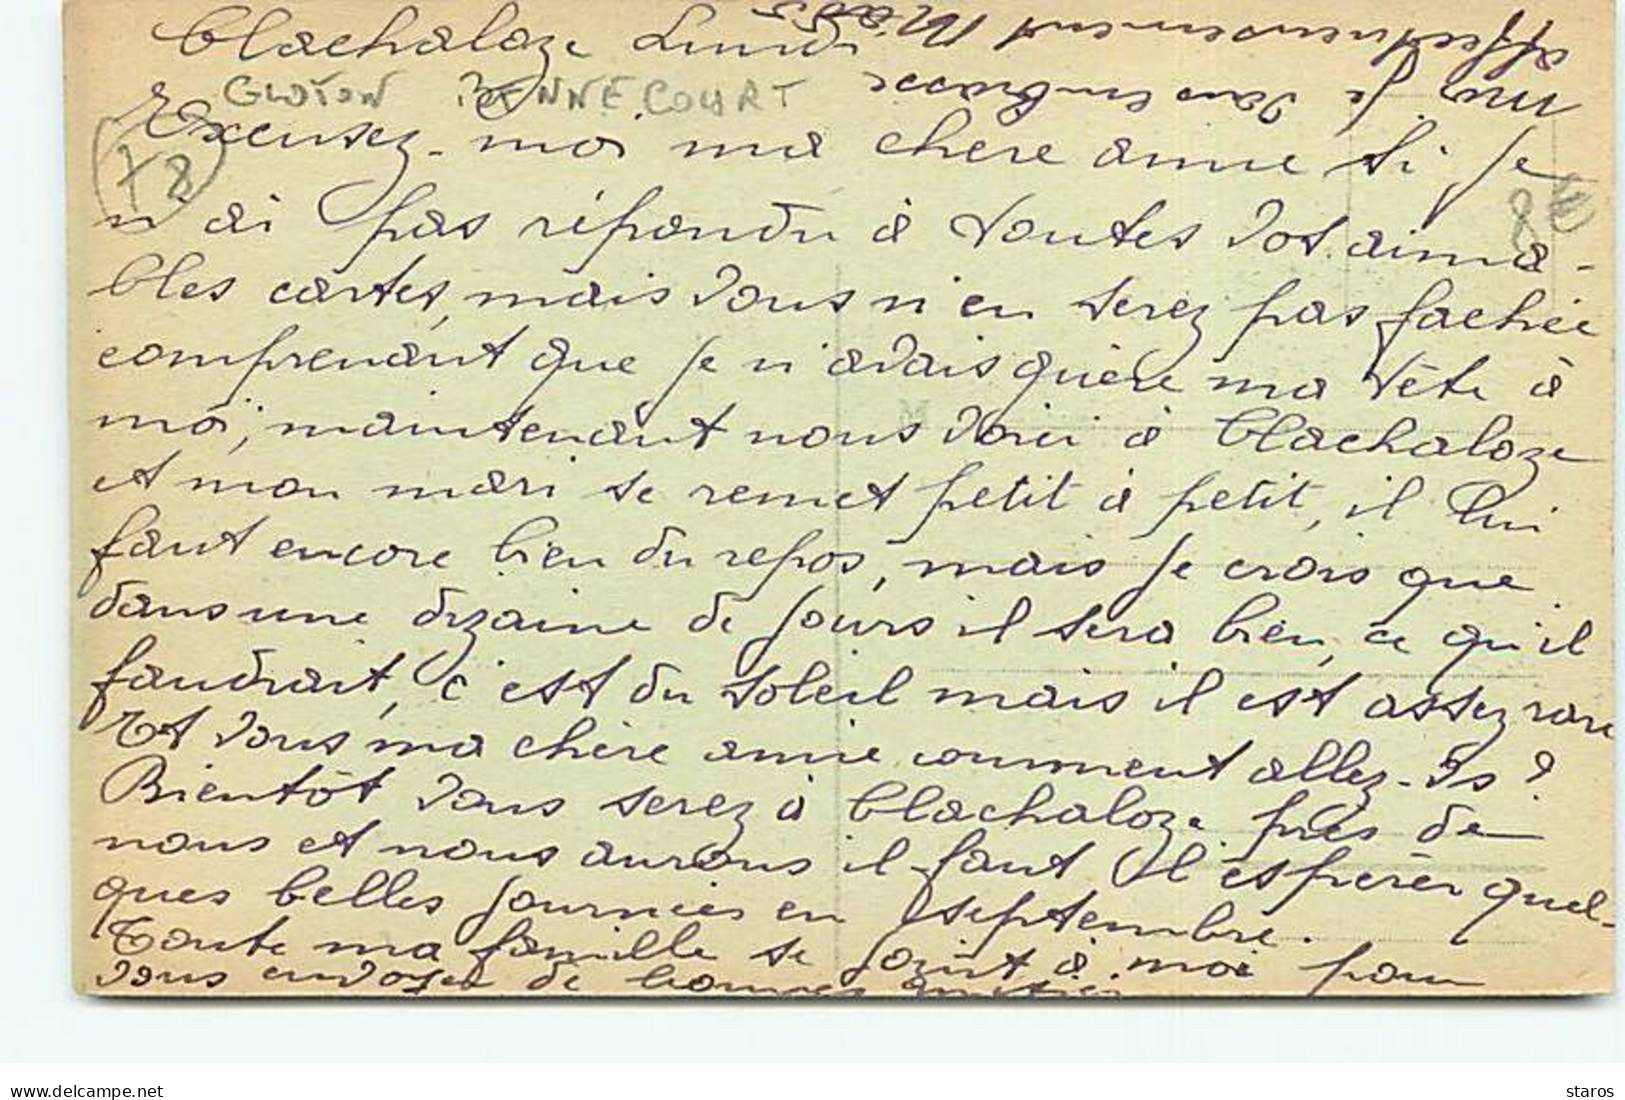 Clachaloze Lundi
GLOTON BENNECOURT
78
8€
Excusez-moi ma chère amie si je
n'ai pas répondu à toutes vos aima-
bles cartes, mais vous n'en serez pas fachée
comprenant que je n'avais guère ma tête à
moi, maintenant nous voici à Clachaloze
et mon mari se remet petit à petit, il lui
faut encore bien du repos, mais je crois que
dans une dizaine de jours il sera bien, ce qu'il
faudrait, c'est du soleil mais il est assez rare
Et vous ma chère amie comment allez-vs?
Bientôt vous serez à Clachaloze près de
nous et nous aurons il faut l'espérer quel-
ques belles journées en septembre.
Toute ma famille se joint à moi pour
vous envoyer de bonnes amitiés
je vous embrasse
affectueusement
staros